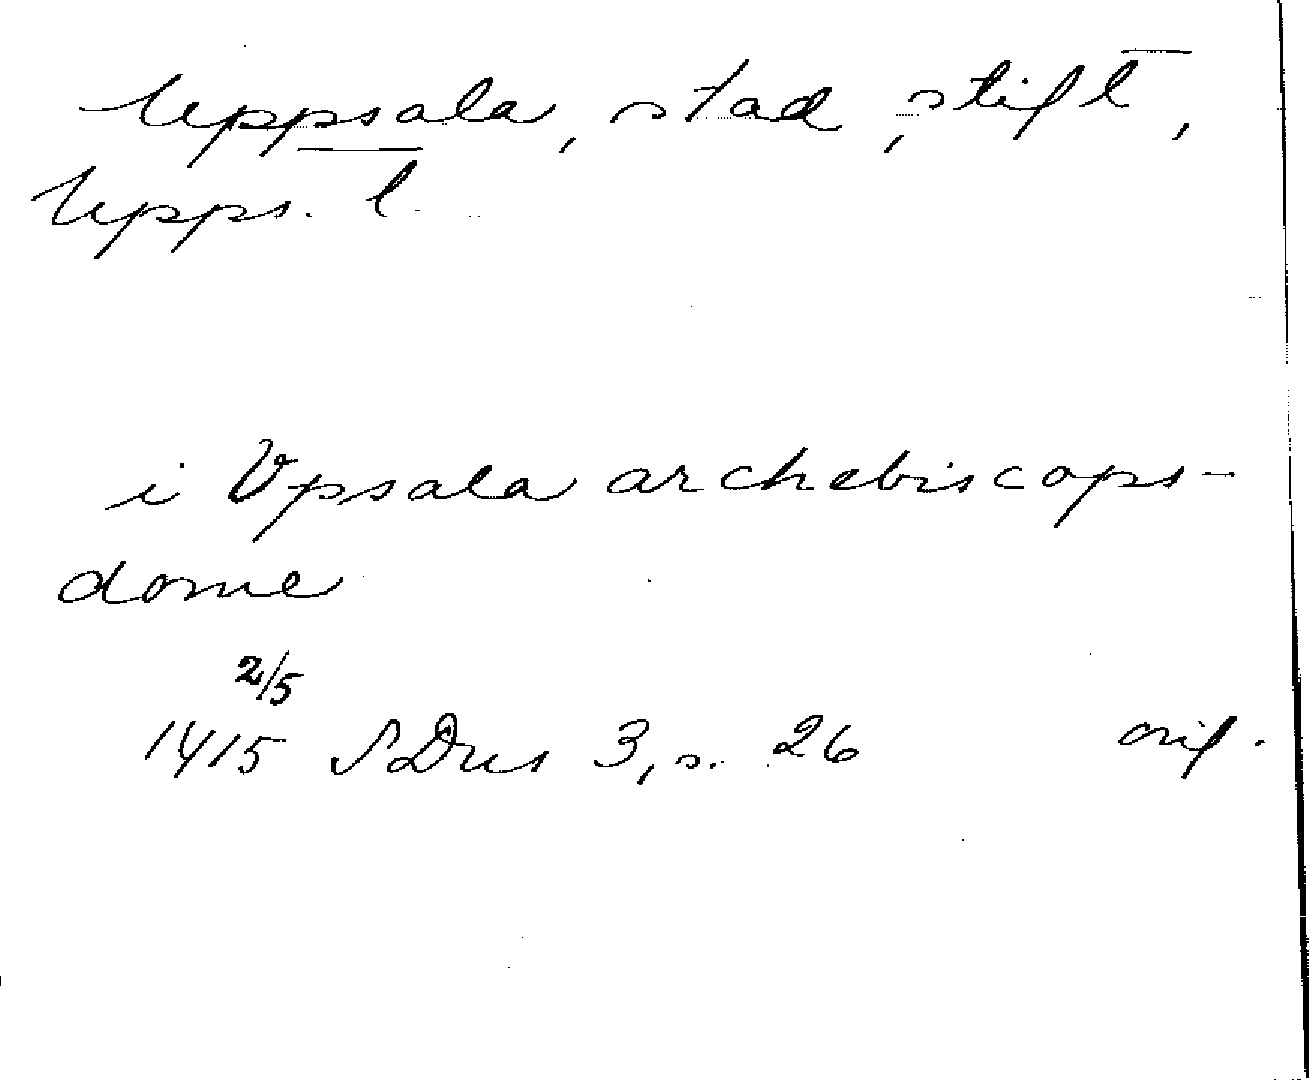 Uppsala, stad, stift,
Upps. l.
i Vpsala archebiscops-
dome
2/5
1415 SDns 3, s. 26 orig.